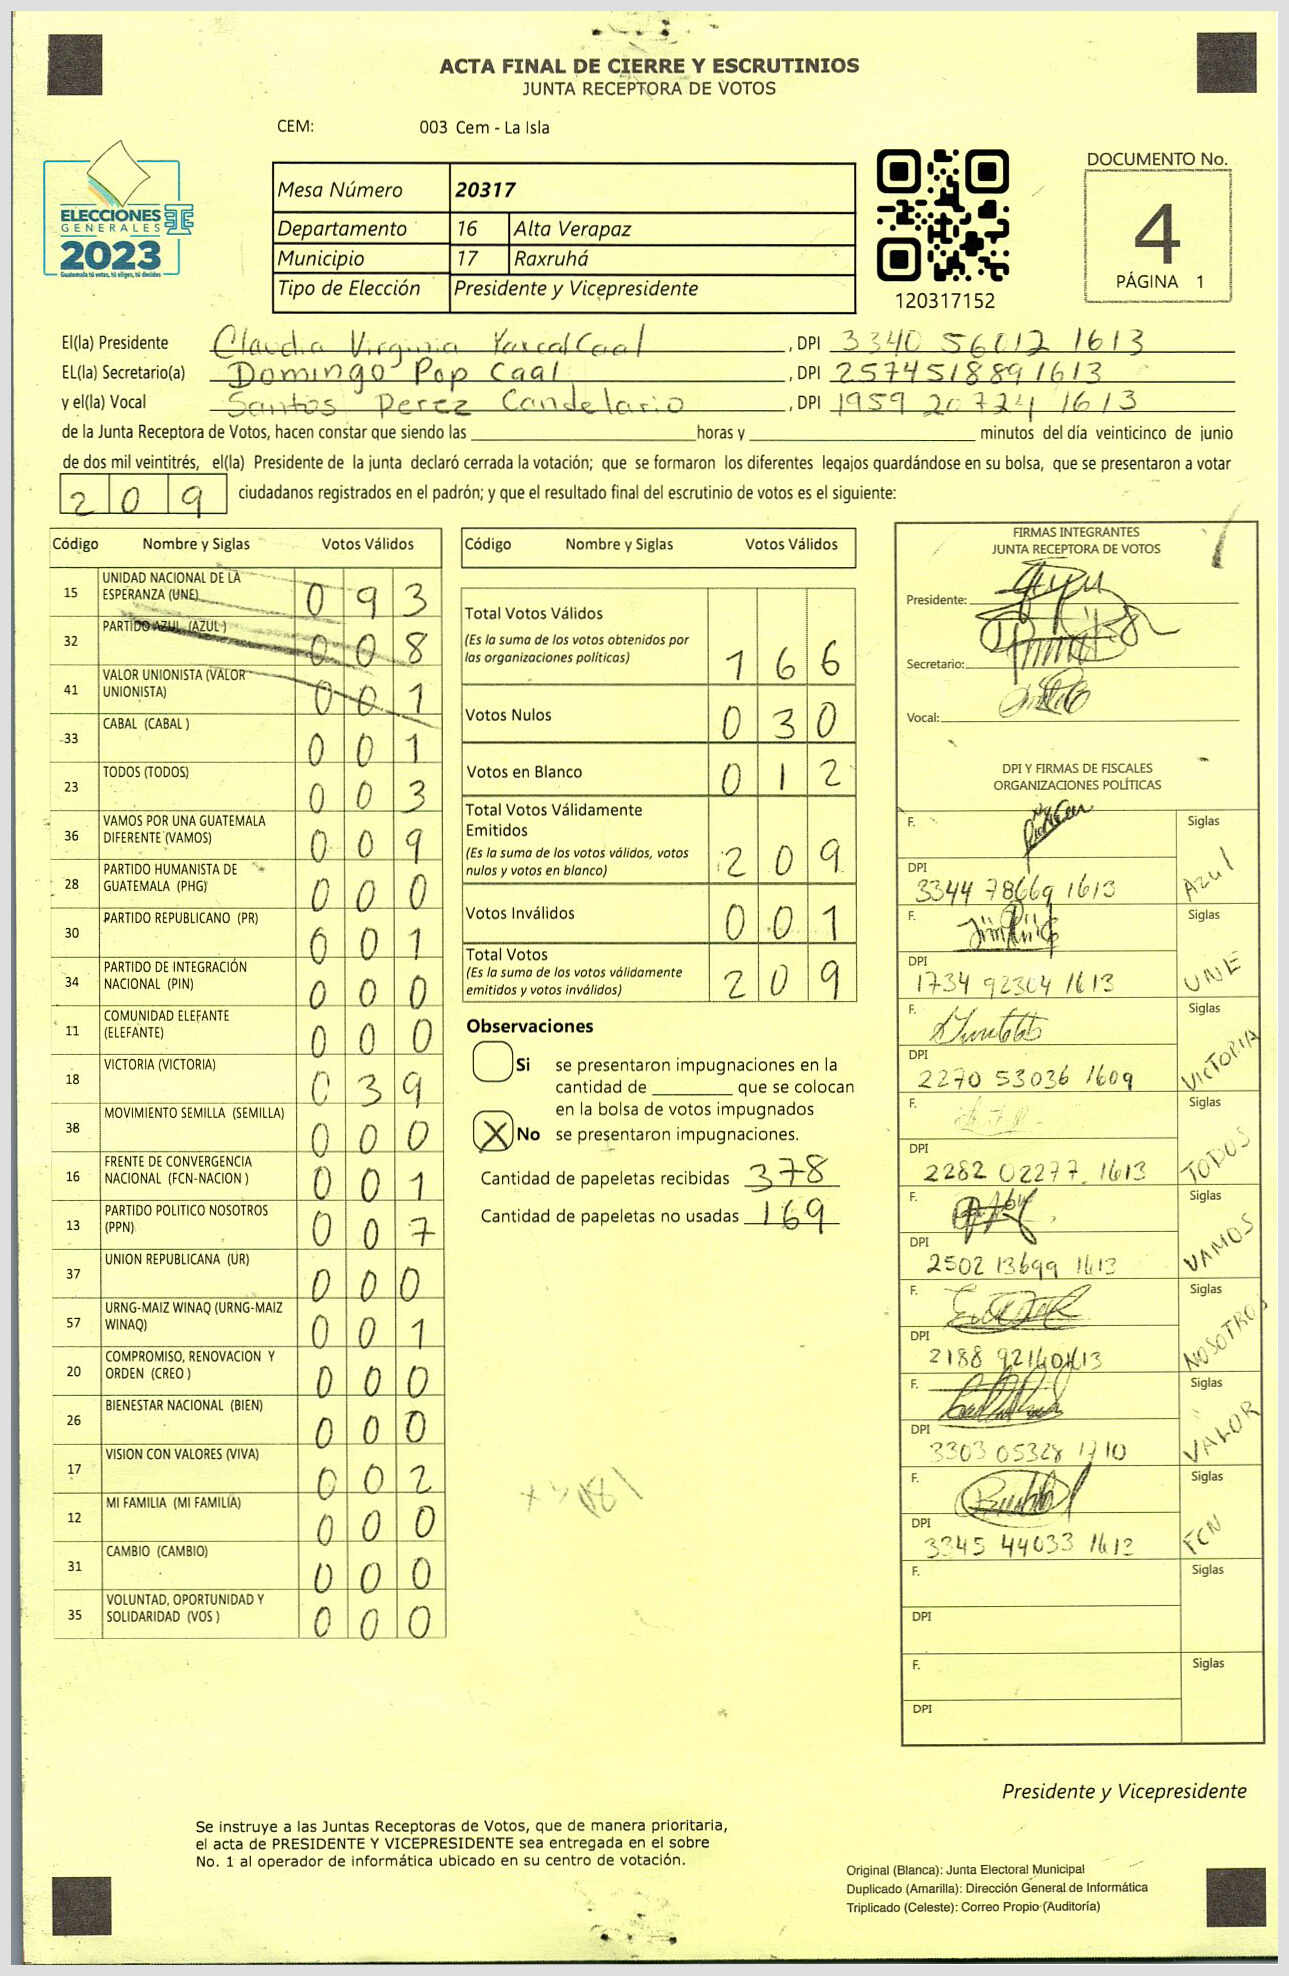 ACTA FINAL DE CIERRE Y ESCRUTINIOS
JUNTA RECEPTORA DE VOTOS
CEM: 003 Cem - La Isla
ELECCIONES
GENERALES
2023
Guatemala tú votas, tú eliges, tú decides
Mesa Número 20317
Departamento 16 Alta Verapaz
Municipio 17 Raxruhá
Tipo de Elección Presidente y Vicepresidente
120317152
DOCUMENTO No.
4
PÁGINA 1
El(la) Presidente Claudia Virginia Caal, DPI 3340 56012 1613
EL(la) Secretario(a) Domingo Pop Caal, DPI 2574518891613
y el(la) Vocal Santos Perez Candelario, DPI 1959 20724 1613
de la Junta Receptora de Votos, hacen constar que siendo las horas y minutos del día veinticinco de junio
de dos mil veintitrés, el(la) Presidente de la junta declaró cerrada la votación; que se formaron los diferentes legajos guardándose en su bolsa, que se presentaron a votar
209 ciudadanos registrados en el padrón; y que el resultado final del escrutinio de votos es el siguiente:
Código Nombre y Siglas Votos Válidos
15 UNIDAD NACIONAL DE LA ESPERANZA (UNE) 093
32 PARTIDO AZUL (AZUL ) 008
41 VALOR UNIONISTA (VALOR UNIONISTA) 001
33 CABAL (CABAL ) 001
23 TODOS (TODOS) 003
36 VAMOS POR UNA GUATEMALA DIFERENTE (VAMOS) 009
28 PARTIDO HUMANISTA DE GUATEMALA (PHG) 000
30 PARTIDO REPUBLICANO (PR) 001
34 PARTIDO DE INTEGRACIÓN NACIONAL (PIN) 000
11 COMUNIDAD ELEFANTE (ELEFANTE) 000
18 VICTORIA (VICTORIA) 039
38 MOVIMIENTO SEMILLA (SEMILLA) 000
16 FRENTE DE CONVERGENCIA NACIONAL (FCN-NACION ) 001
13 PARTIDO POLITICO NOSOTROS (PPN) 007
37 UNION REPUBLICANA (UR) 000
57 URNG-MAIZ WINAQ (URNG-MAIZ WINAQ) 001
20 COMPROMISO, RENOVACION Y ORDEN (CREO ) 000
26 BIENESTAR NACIONAL (BIEN) 000
17 VISION CON VALORES (VIVA) 002
12 MI FAMILIA (MI FAMILIA) 000
31 CAMBIO (CAMBIO) 000
35 VOLUNTAD, OPORTUNIDAD Y SOLIDARIDAD (VOS ) 000
Código Nombre y Siglas Votos Válidos
Total Votos Válidos 166
(Es la suma de los votos obtenidos por
las organizaciones políticas)
Votos Nulos 030
Votos en Blanco 012
Total Votos Válidamente
Emitidos 209
(Es la suma de los votos válidos, votos
nulos y votos en blanco)
Votos Inválidos 001
Total Votos 209
(Es la suma de los votos válidamente
emitidos y votos inválidos)
Observaciones
Si se presentaron impugnaciones en la
cantidad de que se colocan
en la bolsa de votos impugnados
X No se presentaron impugnaciones.
Cantidad de papeletas recibidas 378
Cantidad de papeletas no usadas 169
FIRMAS INTEGRANTES
JUNTA RECEPTORA DE VOTOS
Presidente:
Secretario:
Vocal:
DPI Y FIRMAS DE FISCALES
ORGANIZACIONES POLÍTICAS
F. Siglas
DPI 3344 78669 1613 Azul
F. Siglas
DPI 1734 92304 1613 UNE
F. Siglas
DPI 2270 53036 1609 VICTORIA
F. Siglas
DPI 2282 02277 1613 TODOS
F. Siglas
DPI 2502 13699 1613 VAMOS
F. Siglas
DPI 2188 NOSOTROS
F. Siglas
DPI 3303 05328 1710 VALOR
F. Siglas
DPI 3345 44033 1613 FCN
F. Siglas
DPI
F. Siglas
DPI
Presidente y Vicepresidente
Se instruye a las Juntas Receptoras de Votos, que de manera prioritaria,
el acta de PRESIDENTE Y VICEPRESIDENTE sea entregada en el sobre
No. 1 al operador de informática ubicado en su centro de votación.
Original (Blanca): Junta Electoral Municipal
Duplicado (Amarilla): Dirección General de Informática
Triplicado (Celeste): Correo Propio (Auditoría)